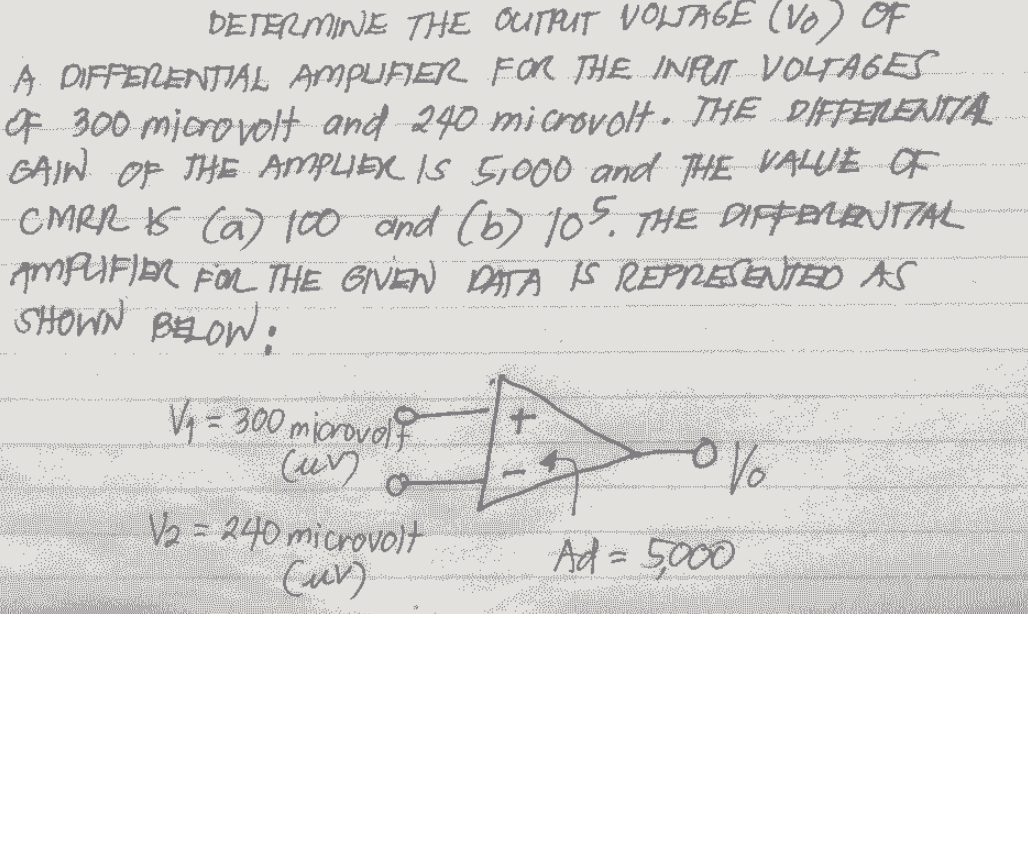 DETERMINE THE OUTPUT VOLTAGE (Vo) OF
A DIFFERENTIAL AMPLIFIER FOR THE INPUT VOLTAGES
OF 300 microvolt and 240 microvolt. THE DIFFERENTIAL
GAIN OF THE AMPLIER IS 5,000 and THE VALUE OF
CMRR IS (a) 100 and (b) 10⁵. THE DIFFERENTIAL
AMPLIFIER FOR THE GIVEN DATA IS REPRESENTED AS
SHOWN BELOW:
V1 = 300 microvolt
(uv)
+
-
Vo
V2 = 240 microvolt
(uv)
Ad = 5,000